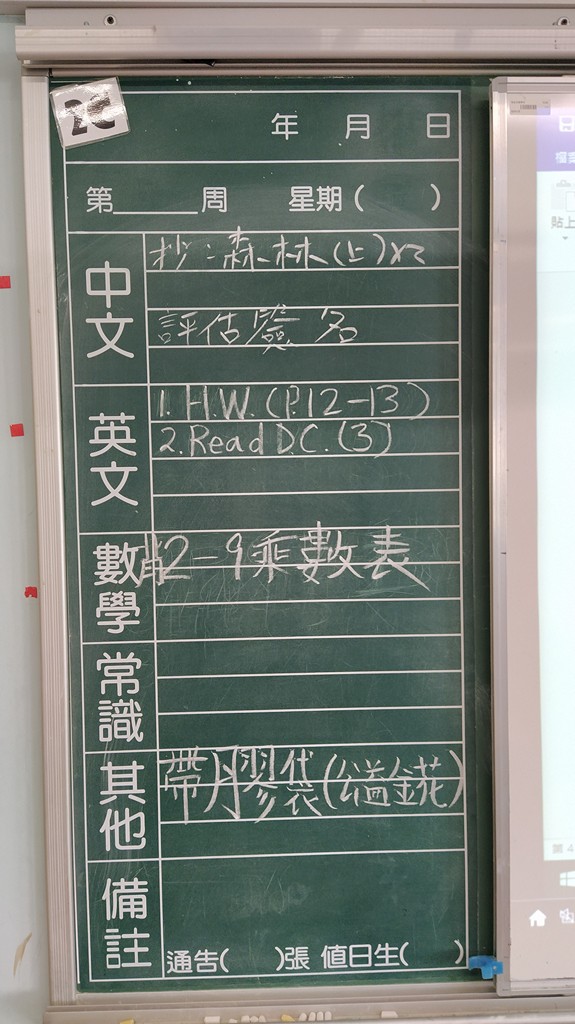 2C
年 月 日
第 周 星期( )
中文
抄:森林(上)x2
評估簽名
英文
1. H.W. (P.12-13)
2. Read D.C. (3)
數學
2-9乘數表
常識
其他
帶膠袋(
備註
通告( )張 值日生( )
貼上